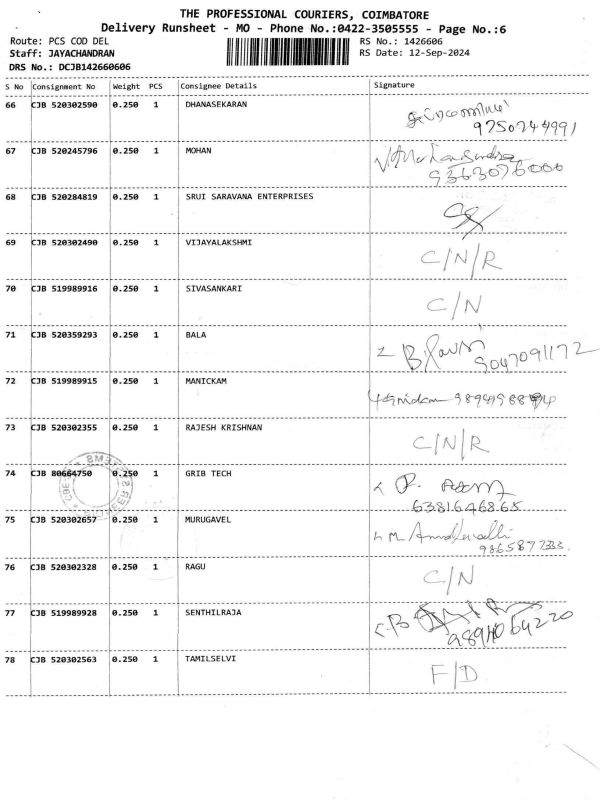 THE PROFESSIONAL COURIERS, COIMBATORE
Delivery Runsheet - MO - Phone No.:0422-3505555 - Page No.:6
Route: PCS COD DEL RS No.: 1426606
Staff: JAYACHANDRAN RS Date: 12-Sep-2024
DRS No.: DCJB142660606
S No Consignment No Weight PCS Consignee Details Signature
66 CJB 520302590 0.250 1 DHANASEKARAN
9750744991
67 CJB 520245796 0.250 1 MOHAN
9363076000
68 CJB 520284819 0.250 1 SRUI SARAVANA ENTERPRISES
69 CJB 520302490 0.250 1 VIJAYALAKSHMI
C/N/R
70 CJB 519989916 0.250 1 SIVASANKARI
C/N
71 CJB 520359293 0.250 1 BALA
9047091172
72 CJB 519989915 0.250 1 MANICKAM
73 CJB 520302355 0.250 1 RAJESH KRISHNAN
C/N/R
74 CJB 80664750 0.250 1 GRIB TECH
6381646865
75 CJB 520302657 0.250 1 MURUGAVEL
9865877333.
76 CJB 520302328 0.250 1 RAGU
C/N
77 CJB 519989928 0.250 1 SENTHILRAJA
9894064220
78 CJB 520302563 0.250 1 TAMILSELVI
F/D